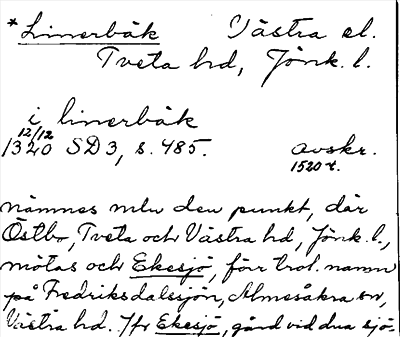 *Linerbäk Västra el.
Tveta hd, Jönk. l.
i linerbäk
12/12
1320 SD 3, s. 485. avskr.
1520 t.
nämnes mlu den punkt, där
Östbo, Tveta och Västra hd, Jönk. l.,
mötas och Ekesjö, förr trol. namn
på Fredriksdalssjön, Almesåkra sn,
Västra hd. Jfr Ekesjö, gård vid dna sjö.